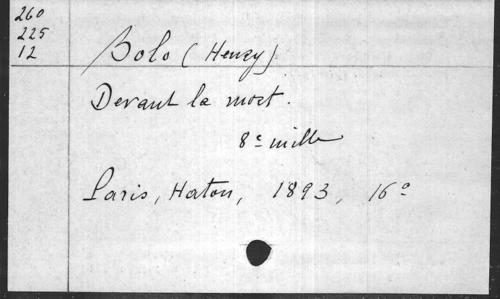 260
225
12
Bolo (Henry)
Devant la mort.
8e mille
Paris, Haton, 1893, 16o